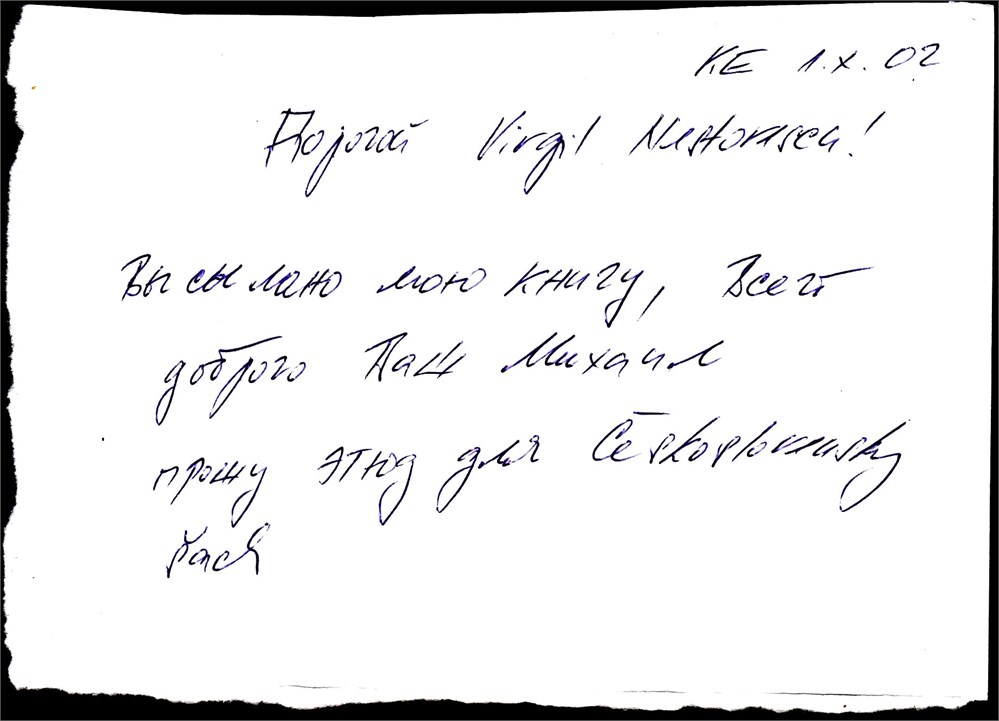 KE 1.X.02
Дорогой Virgil Nestorescu!
Высылаю мою книгу, Всего
доброго Ваш Михаил
прошу этюд для Československý
šach